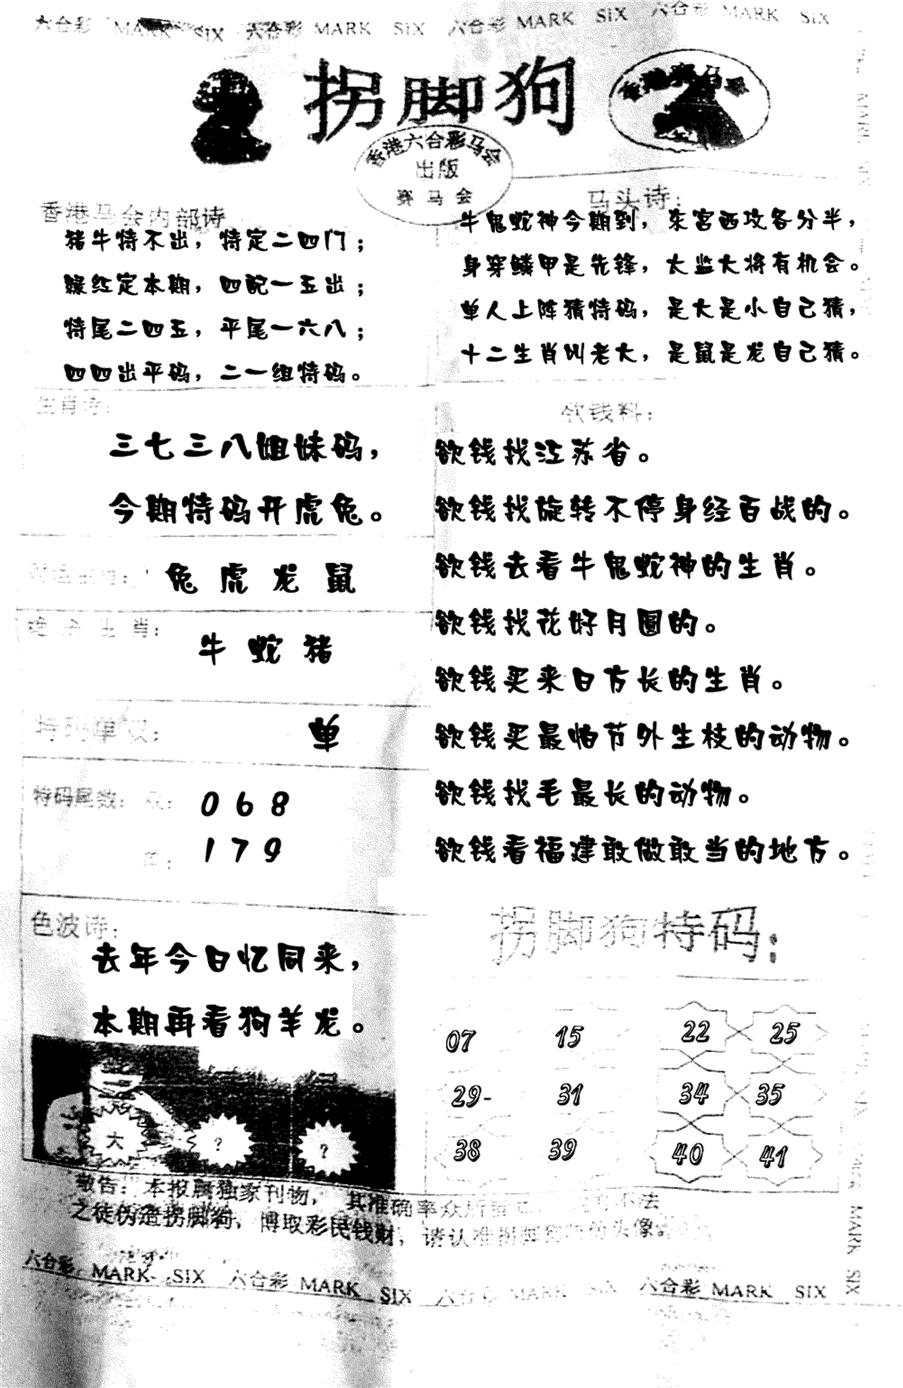 六合彩 MARK SIX 六合彩 MARK SIX 六合彩 MARK SIX 六合彩 MARK SIX
拐脚狗
香港赛马会
香港六合彩马会
出版
赛马会
香港马会内部诗
猪牛特不出，特定二四门；
绿红定本期，四配一五出；
特尾二四五，平尾一六八；
四四出平码，二一组特码。
马头诗：
牛鬼蛇神今期到，东宫西攻各分半，
身穿鳞甲是先锋，太监大将有机会。
单人上阵猜特码，是大是小自己猜，
十二生肖叫老大，是鼠是龙自己猜。
生肖诗：
三七三八姐妹码，
今期特码开虎兔。
兔虎龙鼠
生肖：
牛蛇猪
特码单双：
单
特码尾数：双：
068
单：
179
欲钱料：
欲钱找江苏省。
欲钱找旋转不停身经百战的。
欲钱去看牛鬼蛇神的生肖。
欲钱找花好月圆的。
欲钱买来日方长的生肖。
欲钱买最怕节外生枝的动物。
欲钱找毛最长的动物。
欲钱看福建敢做敢当的地方。
色波诗：
去年今日忆同来，
本期再看狗羊龙。
大 ? ?
拐脚狗特码：
07 15 22 25
29- 31 34 35
38 39 40 41
敬告：本报属独家刊物，其准确率众所 不法
之徒伪造拐脚狗，博取彩民钱财，请认准拐脚狗 头像。
六合彩 MARK SIX 六合彩 MARK SIX 六合彩 MARK SIX 六合彩 MARK SIX
MARK SIX